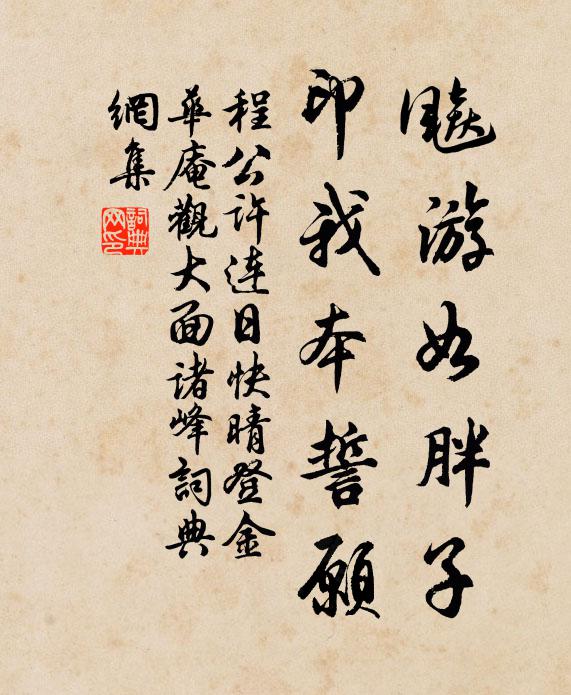 游如胖子
印我本誓願
程公許連日快晴登金
華庵觀大面諸峰詞典
網集
詞典
网印